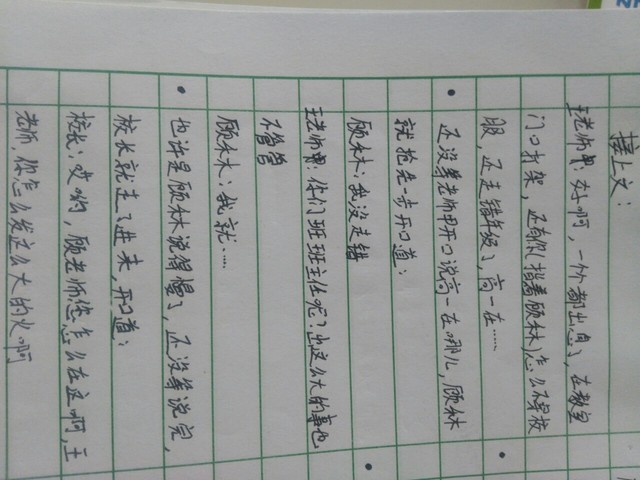 接上文：
王老师甲：好啊，一个个都出息了，在教室
门口打架，还有你（指着顾林）怎么不穿校
服，还走错年级了，高一在……
还没等老师甲开口说高一在哪儿，顾林
就抢先一步开口道：
顾林：我没走错
王老师甲：你们班班主任呢？出这么大的事也
不管管
顾林：我就……
也许是顾林说得慢了，还没等说完，
校长就走了进来，开口道：
校长：哎哟，顾老师您怎么在这啊，王
老师，你怎么发这么大的火啊